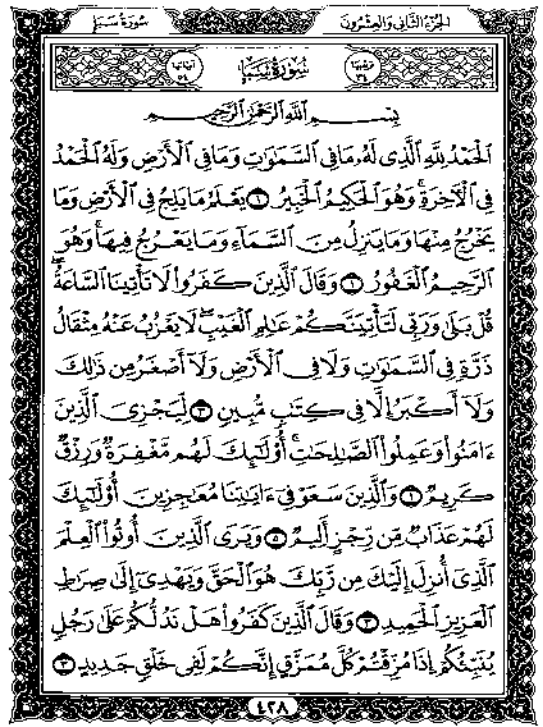 سُورَةُ سَبَإٍ
الجُزءُ الثَّانِي وَالعِشْرُونَ
ترتيبها ٣٤
سُورَةُ سَبَإٍ
آياتها ٥٤
بِسْمِ ٱللَّهِ ٱلرَّحْمَٰنِ ٱلرَّحِيمِ
ٱلْحَمْدُ لِلَّهِ ٱلَّذِى لَهُۥ مَا فِى ٱلسَّمَٰوَٰتِ وَمَا فِى ٱلْأَرْضِ وَلَهُ ٱلْحَمْدُ
فِى ٱلْءَاخِرَةِ ۚ وَهُوَ ٱلْحَكِيمُ ٱلْخَبِيرُ ۝١ يَعْلَمُ مَا يَلِجُ فِى ٱلْأَرْضِ وَمَا
يَخْرُجُ مِنْهَا وَمَا يَنزِلُ مِنَ ٱلسَّمَآءِ وَمَا يَعْرُجُ فِيهَا ۚ وَهُوَ
ٱلرَّحِيمُ ٱلْغَفُورُ ۝ وَقَالَ ٱلَّذِينَ كَفَرُوا۟ لَا تَأْتِينَا ٱلسَّاعَةُ ۖ
قُلْ بَلَىٰ وَرَبِّى لَتَأْتِيَنَّكُمْ عَٰلِمِ ٱلْغَيْبِ ۖ لَا يَعْزُبُ عَنْهُ مِثْقَالُ
ذَرَّةٍ فِى ٱلسَّمَٰوَٰتِ وَلَا فِى ٱلْأَرْضِ وَلَآ أَصْغَرُ مِن ذَٰلِكَ
وَلَآ أَكْبَرُ إِلَّا فِى كِتَٰبٍ مُّبِينٍ ۝٣ لِّيَجْزِىَ ٱلَّذِينَ
ءَامَنُوا۟ وَعَمِلُوا۟ ٱلصَّٰلِحَٰتِ ۚ أُو۟لَٰٓئِكَ لَهُم مَّغْفِرَةٌ وَرِزْقٌ
كَرِيمٌ ۝ وَٱلَّذِينَ سَعَوْ فِىٓ ءَايَٰتِنَا مُعَٰجِزِينَ أُو۟لَٰٓئِكَ
لَهُمْ عَذَابٌ مِّن رِّجْزٍ أَلِيمٌ ۝٥ وَيَرَى ٱلَّذِينَ أُوتُوا۟ ٱلْعِلْمَ
ٱلَّذِىٓ أُنزِلَ إِلَيْكَ مِن رَّبِّكَ هُوَ ٱلْحَقَّ وَيَهْدِىٓ إِلَىٰ صِرَٰطِ
ٱلْعَزِيزِ ٱلْحَمِيدِ ۝ وَقَالَ ٱلَّذِينَ كَفَرُوا۟ هَلْ نَدُلُّكُمْ عَلَىٰ رَجُلٍ
يُنَبِّئُكُمْ إِذَا مُزِّقْتُمْ كُلَّ مُمَزَّقٍ إِنَّكُمْ لَفِى خَلْقٍ جَدِيدٍ ۝
٤٢٨